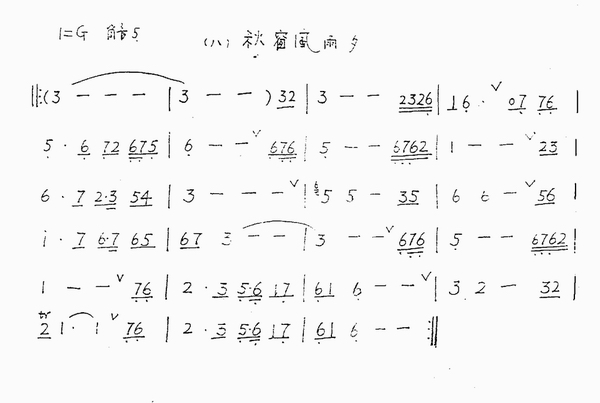 1=G 筒音5
(八) 秋窗風雨夕
‖:(3 - - - | 3 - - ) 32 | 3 - - 2326 | 16 · ∨ 07 76 |
5 · 6 72 675 | 6 - - ∨ 676 | 5 - - 6762 | 1 - - ∨ 23 |
6 · 7 2·3 54 | 3 - - - ∨ | 5 5 - 35 | 6 6 - ∨ 56 |
i · 7 6·7 65 | 67 3 - - | 3 - - ∨ 676 | 5 - - 6762 |
1 - - ∨ 76 | 2 · 3 5·6 17 | 61 6 - - ∨ | 3 2 - 32 |
tr 2 1 · 1 ∨ 76 | 2 · 3 5·6 17 | 61 6 - - :‖